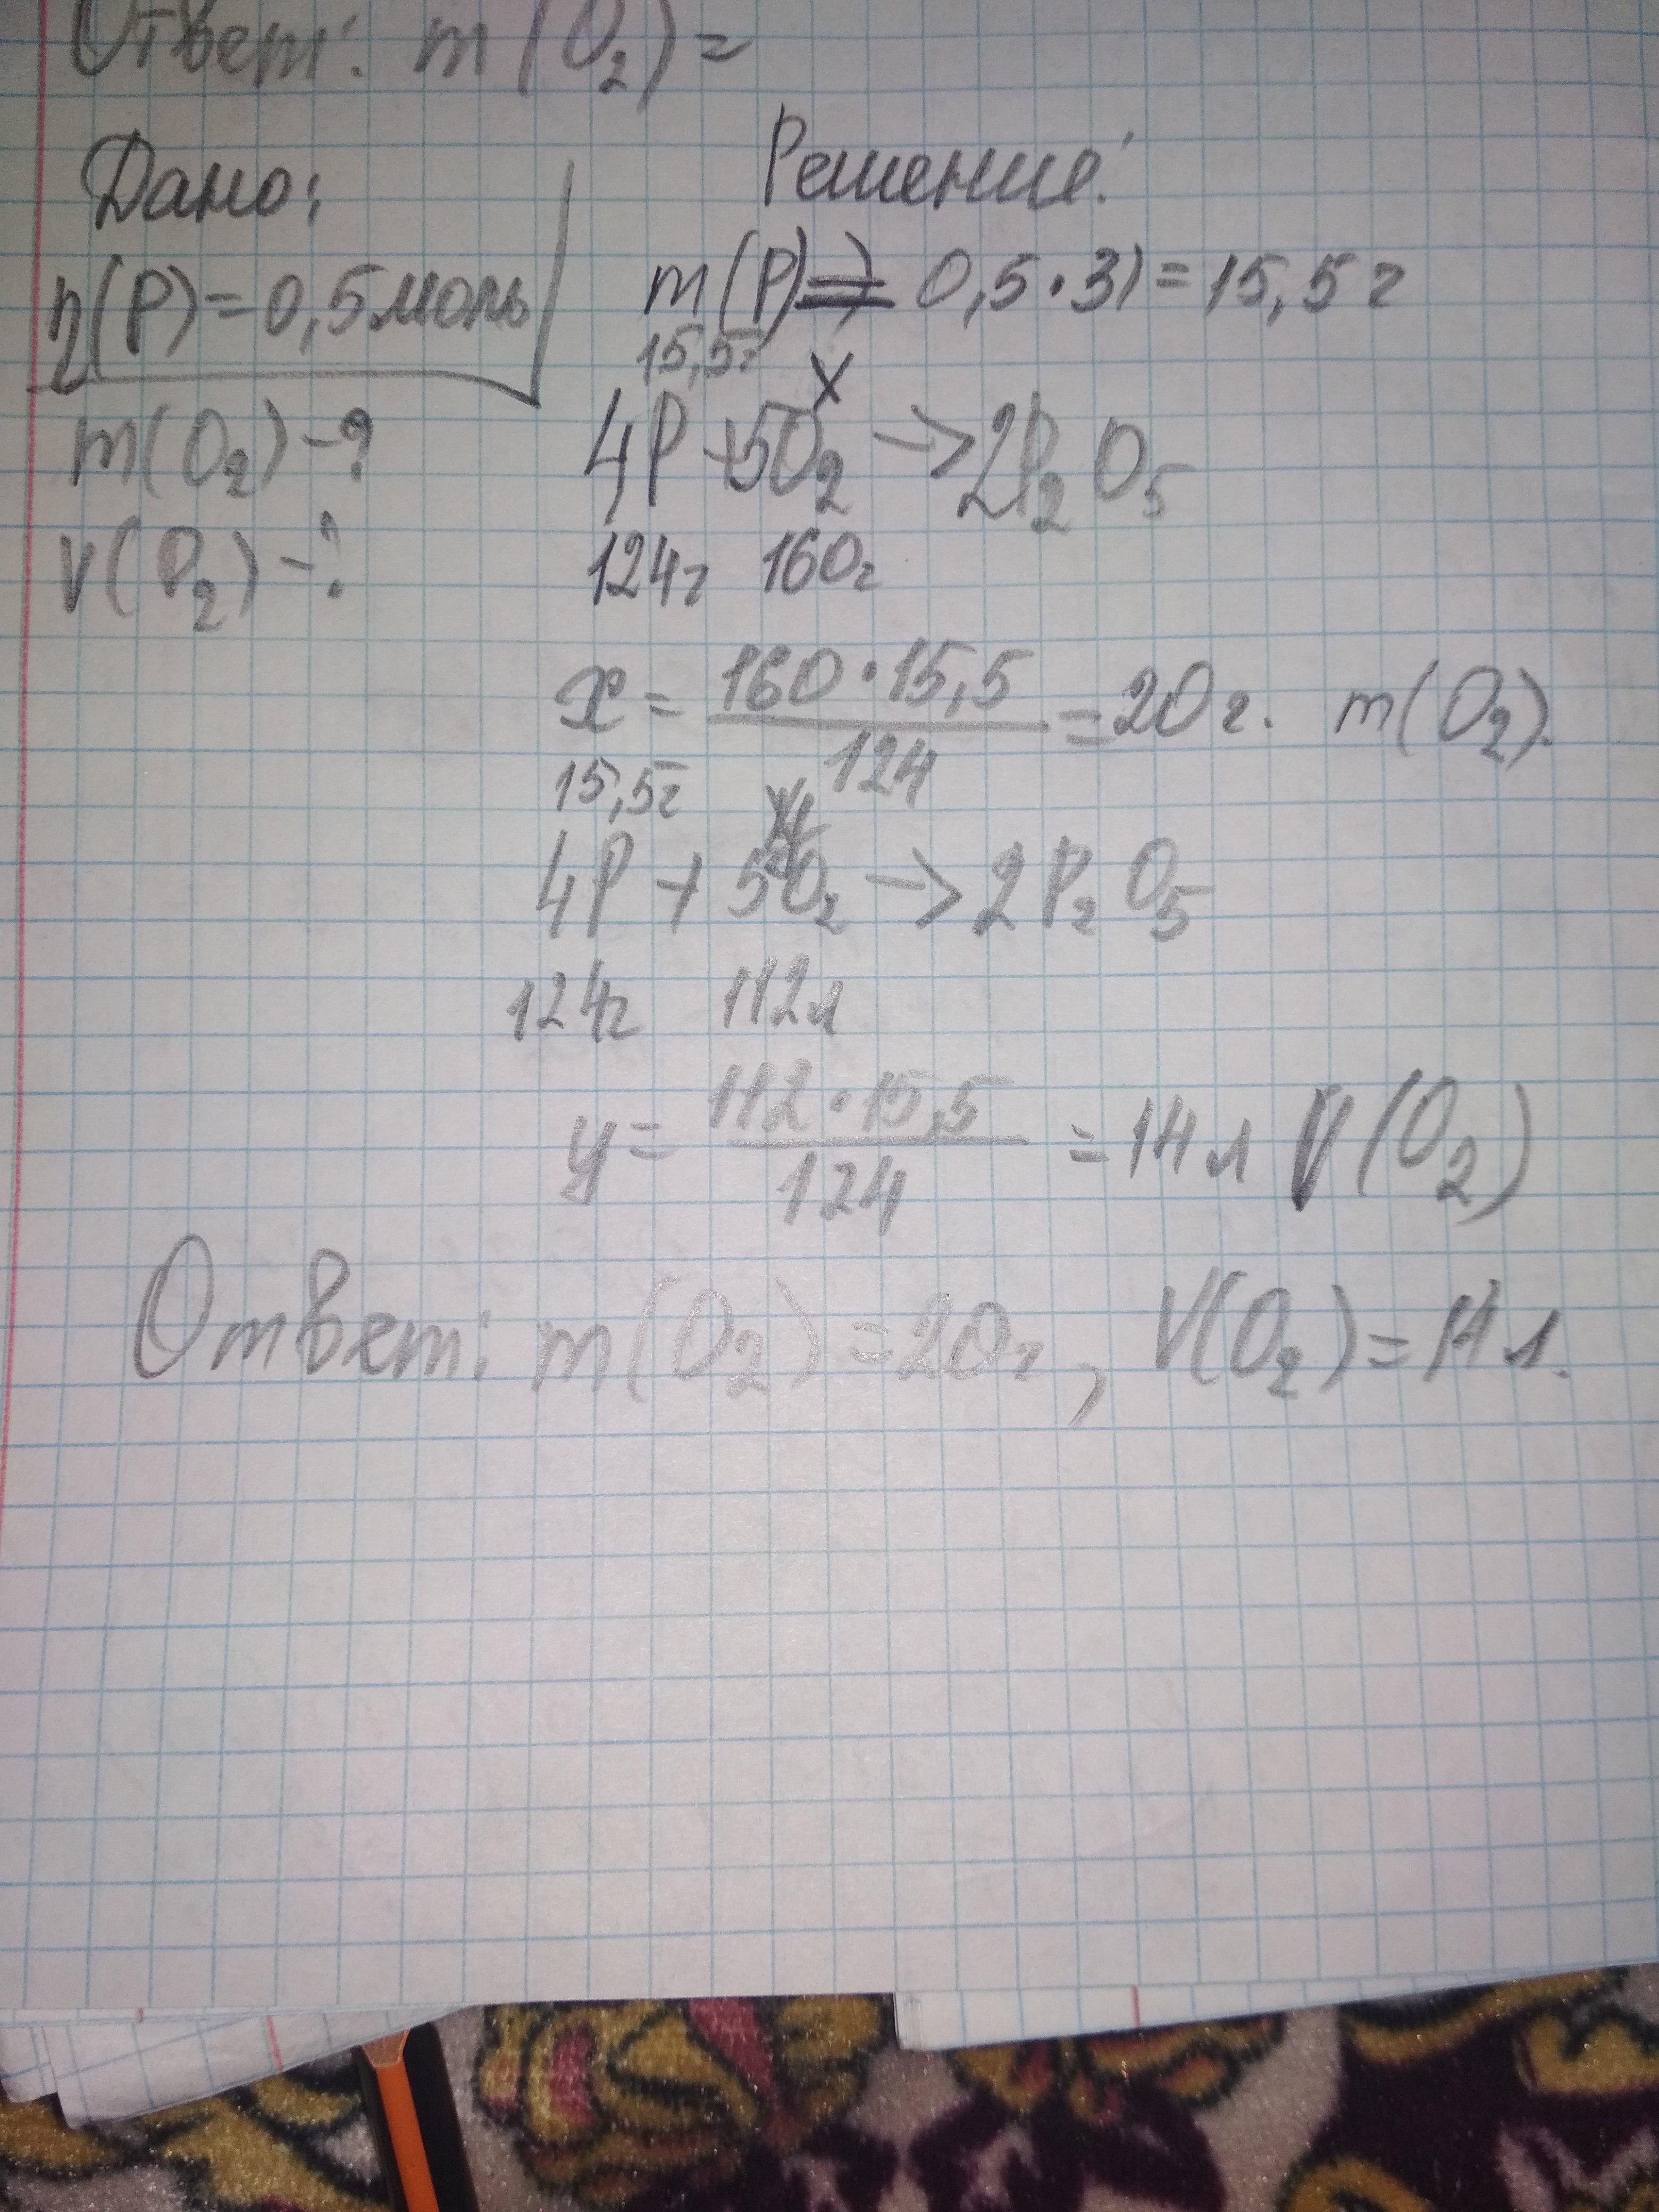 Ответ: m(O₂)=
Дано:
Решение:
η(P)=0,5моль
m(P)= 0,5·31=15,5г
15,5г x
m(O₂)-?
4P+5O₂→2P₂O₅
V(O₂)-?
124г 160г
x = 160·15,5/124 = 20г. m(O₂).
15,5г
4P + 5O₂ → 2P₂O₅
124г 112л
y = 112·15,5/124 = 14л V(O₂)
Ответ: m(O₂)=20г, V(O₂)=14л.